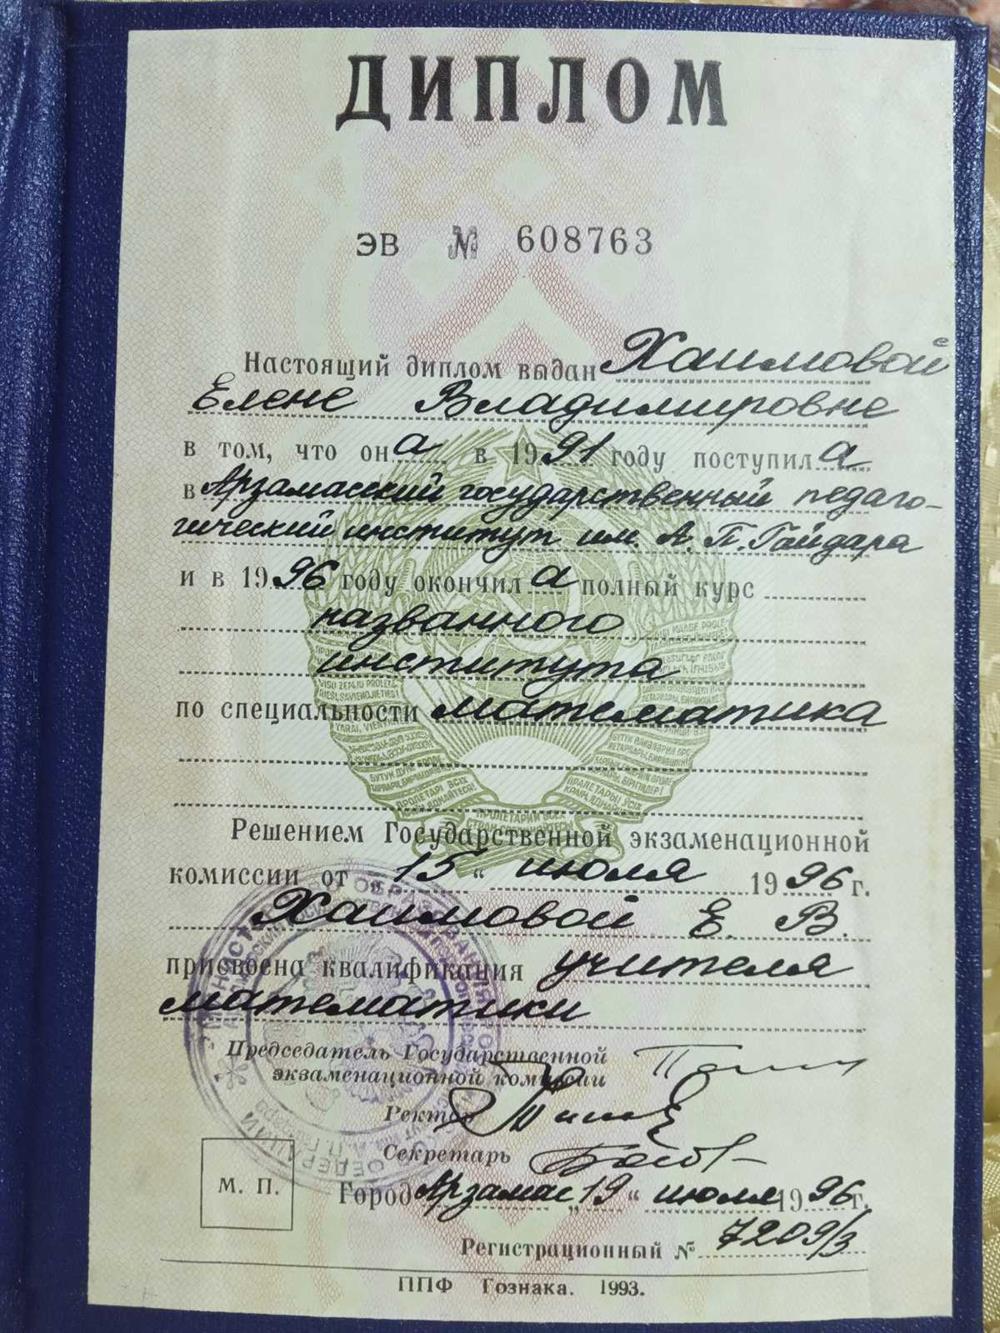 ДИПЛОМ
ЭВ № 608763
Настоящий диплом выдан Хаимовой
Елене Владимировне
в том, что она в 1991 году поступила
в Арзамасский государственный педаго-
гический институт им. А. П. Гайдара
и в 1996 году окончила полный курс
названного
института
по специальности математика
Решением Государственной экзаменационной
комиссии от „15“ июля 1996 г.
Хаимовой Е. В.
присвоена квалификация учителя
математики
Председатель Государственной
экзаменационной комиссии
Ректор
Секретарь
М. П.
Город Арзамас „19“ июля 1996 г.
Регистрационный № 7209/3
ППФ Гознака. 1993.